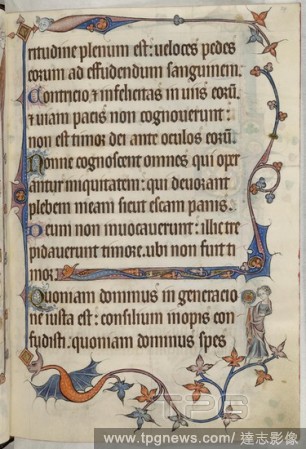 ritudine plenum est: veloces pedes
eorum ad effundendum sanguinem.
Contricio ⁊ infelicitas in uiis eorū
⁊ uiam pacis non cognouerunt:
non est timor dei ante oculos eorū.
Nonne cognoscent omnes qui oper
antur iniquitatem: qui deuorant
plebem meam sicut escam panis.
Deum non inuocauerunt: illic tre
pidauerunt timore. ubi non fuit ti
mor:
Quoniam dominus in generacio
ne iusta est: consilium inopis con
fudisti: quoniam dominus spes
TPG
www.tpgnews.com/ 達志影像